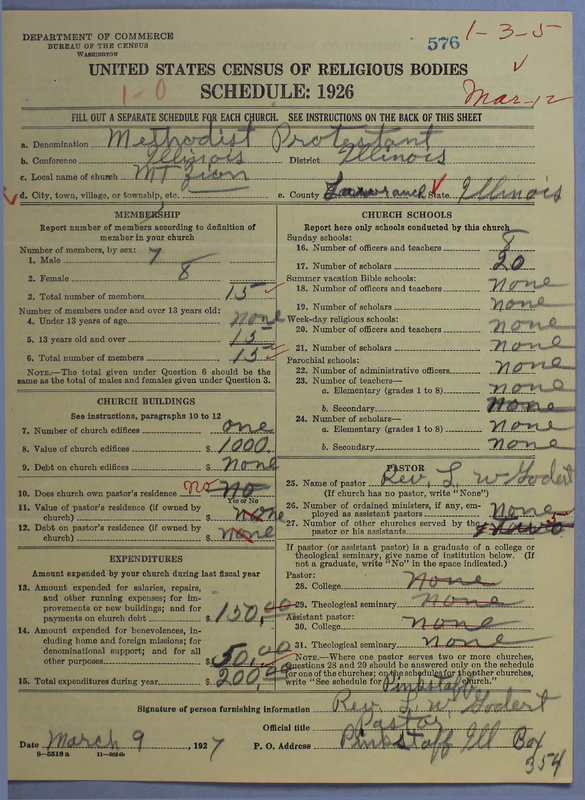 DEPARTMENT OF COMMERCE
BUREAU OF THE CENSUS
WASHINGTON
576
1-3-5
UNITED STATES CENSUS OF RELIGIOUS BODIES
1-0
SCHEDULE: 1926
Mar-12
FILL OUT A SEPARATE SCHEDULE FOR EACH CHURCH. SEE INSTRUCTIONS ON THE BACK OF THIS SHEET
a. Denomination Methodist Protestant
b. Conference Illinois District Illinois
c. Local name of church MT Zion
d. City, town, village, or township, etc. e. County State Illinois
MEMBERSHIP
Report number of members according to definition of
member in your church
Number of members, by sex:
1. Male 7
2. Female 8
3. Total number of members 15
Number of members under and over 13 years old:
4. Under 13 years of age none
5. 13 years old and over 15
6. Total number of members 15
NOTE.—The total given under Question 6 should be the
same as the total of males and females given under Question 3.
CHURCH BUILDINGS
See instructions, paragraphs 10 to 12
7. Number of church edifices one
8. Value of church edifices $ 1000.
9. Debt on church edifices $ None
10. Does church own pastor's residence no No
Yes or No
11. Value of pastor's residence (if owned by
church) $ none
12. Debt on pastor's residence (if owned by
church) $ none
EXPENDITURES
Amount expended by your church during last fiscal year
13. Amount expended for salaries, repairs,
and other running expenses; for im-
provements or new buildings; and for
payments on church debt $ 150.00
14. Amount expended for benevolences,
including home and foreign missions; for
denominational support; and for all
other purposes $ 50.00
15. Total expenditures during year $ 200.00
CHURCH SCHOOLS
Report here only schools conducted by this church
Sunday schools:
16. Number of officers and teachers 8
17. Number of scholars 20
Summer vacation Bible schools:
18. Number of officers and teachers none
19. Number of scholars none
Week-day religious schools:
20. Number of officers and teachers none
21. Number of scholars none
Parochial schools:
22. Number of administrative officers none
23. Number of teachers—
a. Elementary (grades 1 to 8) none
b. Secondary None
24. Number of scholars—
a. Elementary (grades 1 to 8) none
b. Secondary none
PASTOR
25. Name of pastor Rev. L. W Godert
(If church has no pastor, write "None")
26. Number of ordained ministers, if any, em-
ployed as assistant pastors none
27. Number of other churches served by the
pastor or his assistants 5
If pastor (or assistant pastor) is a graduate of a college or
theological seminary, give name of institution below. (If
not a graduate, write "No" in the space indicated.)
Pastor:
28. College None
29. Theological seminary none
Assistant pastor:
30. College none
31. Theological seminary none
NOTE.—Where one pastor serves two or more churches,
Questions 28 and 29 should be answered only on the schedule
for one of the churches; on the schedules for the other churches,
write "See schedule for Pinkstaff church."
Signature of person furnishing information Rev. L. W. Godert
Official title Pastor
Date March 9, 1927 P. O. Address Pinkstaff Ill Box
354
8-5518a 11-9554b